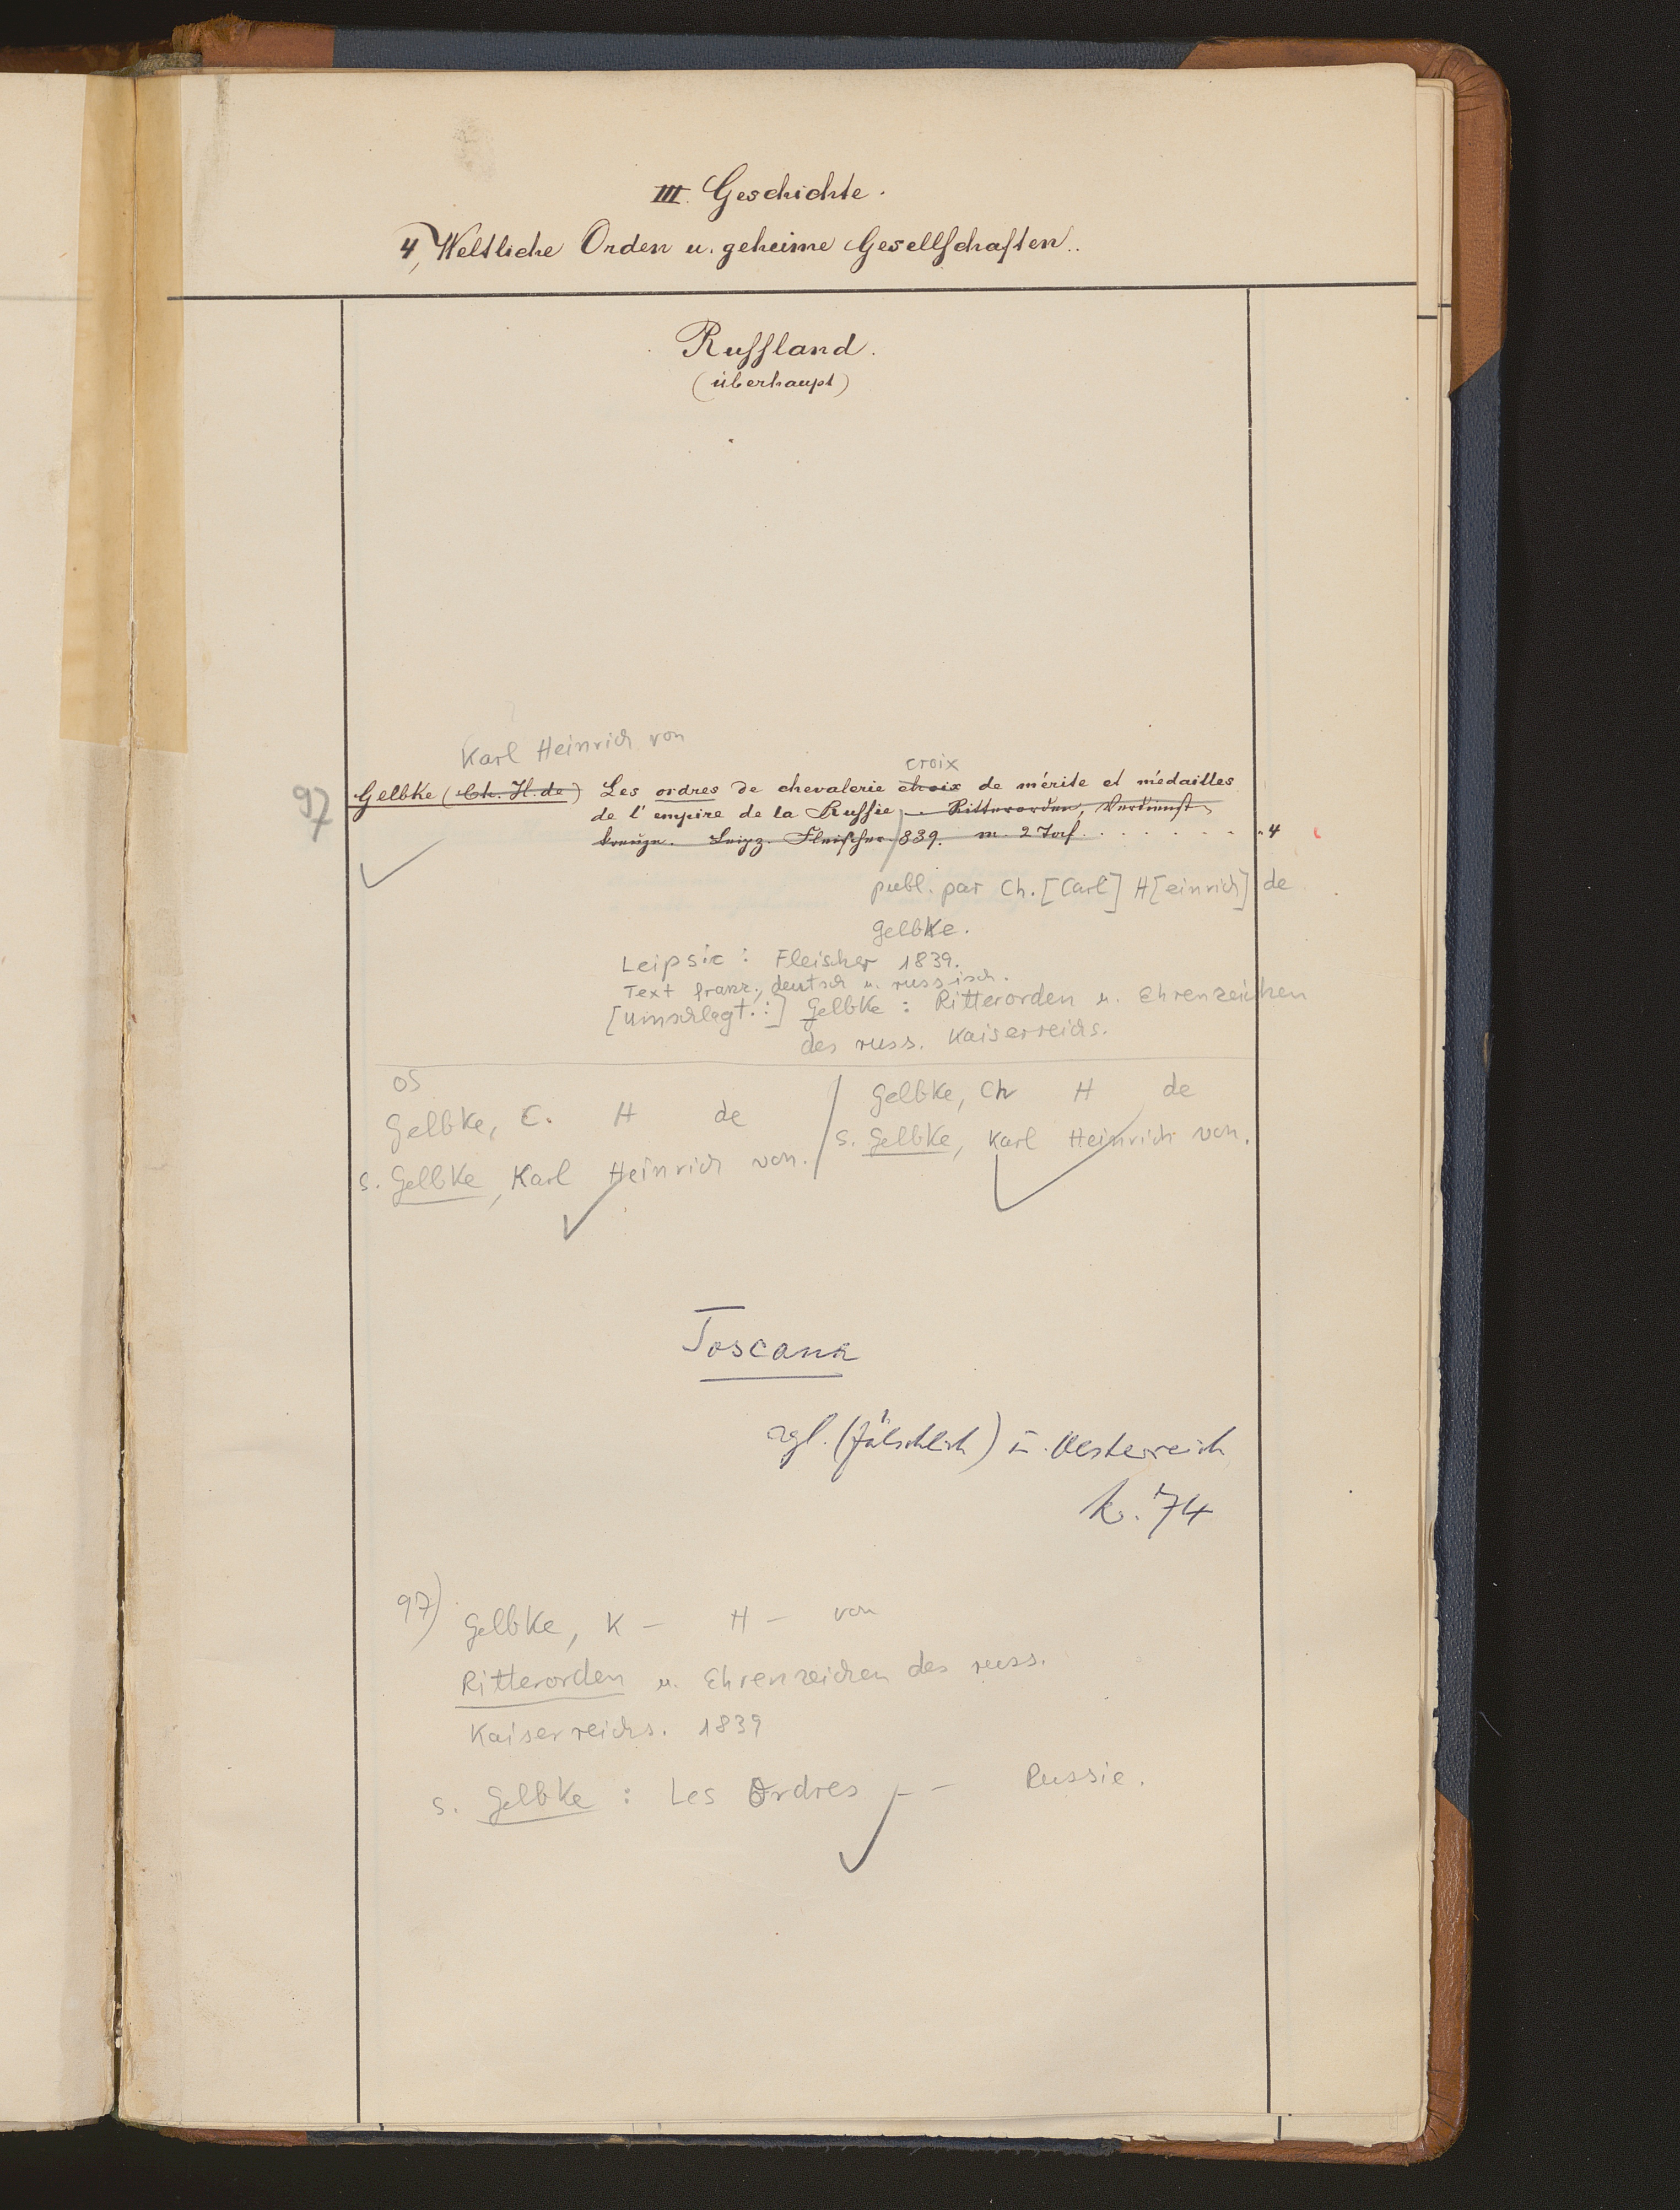 III. Geschichte.
4, Weltliche Orden u. geheime Gesellschaften.
Russland.
(überhaupt)
Karl Heinrich von
croix
97
Gelbke (Ch. H. de) Les ordres de chevalerie choix de mérite et médailles
de l'empire de la Russie. Ritterorden, Verdienst
kreuze. Leipz. Fleischer 839. m. 2 Taf. 4
publ. par Ch. [Carl] H[einrich] de
Gelbke.
Leipsic : Fleischer 1839.
Text franz., deutsch u. russisch.
[Umschlagt.:] Gelbke : Ritterorden u. Ehrenzeichen
des russ. Kaiserreichs.
OS
Gelbke, C. H de / Gelbke, Ch H de
s. Gelbke, Karl Heinrich von. s. Gelbke, Karl Heinrich von.
Toscana
vgl. (fälschlich) u. Oesterreich
k. 74
97)
Gelbke, K – H – von
Ritterorden u. Ehrenzeichen des russ.
Kaiserreichs. 1839
s. Gelbke : Les Ordres – – Russie.